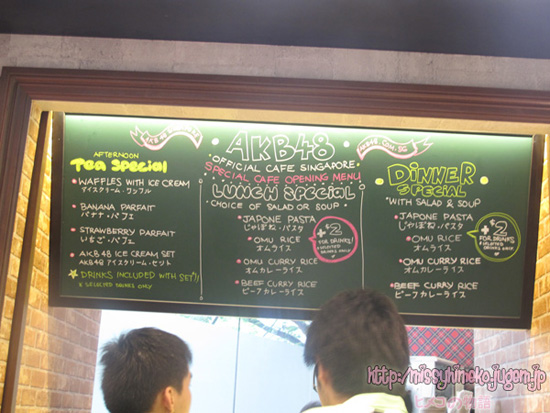 AFTERNOON
Tea Special
WAFFLES WITH ICE CREAM
アイスクリーム・ワッフル
BANANA PARFAIT
バナナ・パフェ
STRAWBERRY PARFAIT
いちご・パフェ
AKB48 ICE CREAM SET
AKB48 アイスクリーム・セット
DRINKS INCLUDED WITH SET!!
* SELECTED DRINKS ONLY
AKB48
OFFICIAL CAFE SINGAPORE
SPECIAL CAFE OPENING MENU
LUNCH SPECIAL
CHOICE OF SALAD OR SOUP
JAPONE PASTA
じゃぽね・パスタ
OMU RICE
オムライス
OMU CURRY RICE
オムカレーライス
BEEF CURRY RICE
ビーフカレーライス
+$2
FOR DRINKS!
DINNER
SPECIAL
WITH SALAD & SOUP
JAPONE PASTA
じゃぽね・パスタ
OMU RICE
オムライス
OMU CURRY RICE
オムカレーライス
BEEF CURRY RICE
ビーフカレーライス
+$2
FOR DRINKS
http://missyhimeko.jugem.jp